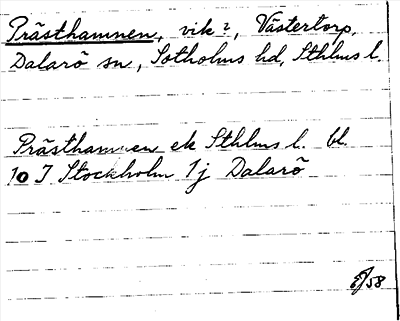 Prästhamnen, vik?, Västertorp,
Dalarö sn, Sotholms hd, Sthlms l.
Prästhamnen ek Sthlms l. bl.
10 I Stockholm 1j Dalarö
58